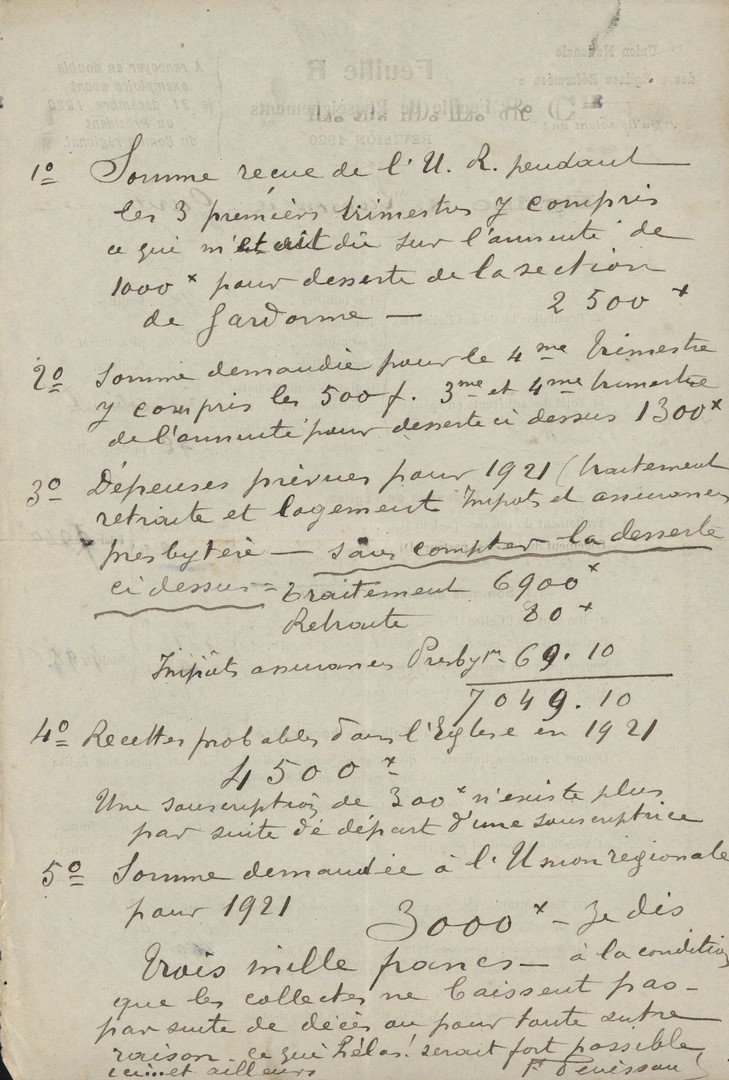 1º Somme reçue de l'U. R. pendant
les 3 premiers trimestres y compris
ce qui m'était dû sur l'annuité de
1000 x pour desserte de la section
de Gardonne — 2500 x
2º Somme demandée pour le 4me trimestre
y compris les 500 f. 3me et 4me trimestre
de l'annuité pour desserte ci dessus 1300 x
3º Dépenses prévues pour 1921 (traitement
retraite et logement Impôts et assurances
presbytère — sans compter la desserte
ci dessus = Traitement 6900 x
Retraite 80 x
Impôts assurances Presbyre 69.10
7049.10
4º Recettes probables dans l'Eglise en 1921
4500 x
Une souscription de 300 x n'existe plus
par suite de départ d'une souscriptrice
5º Somme demandée à l'Union régionale
pour 1921 3000 x — Je dis
trois mille francs — à la condition
que les collectes ne baissent pas —
par suite de décès ou pour toute autre
raison. ce qui hélas! serait fort possible
ici... et ailleurs